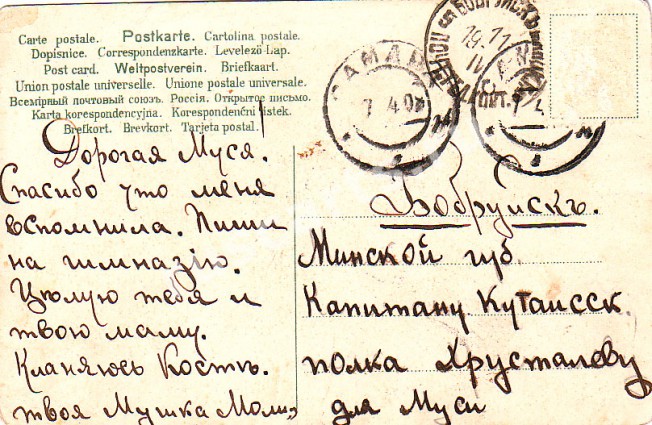 Carte postale. Postkarte. Cartolina postale.
Dopisnice. Correspondenzkarte. Levelező-Lap.
Post card. Weltpostverein. Briefkaart.
Union postale universelle. Unione postale universale.
Всемірный почтовый союзъ. Россія. Открытое письмо.
Karta korespondencyjna. Korespondenční lístek.
Brefkort. Brevkort. Tarjeta postal.
Дорогая Муся!
Спасибо что меня
вспомнила. Пиши
на гимназію.
Цѣлую тебя и
твою маму.
Кланяюсь Костѣ.
твоя Мушка
Бобруйскъ.
Минской губ.
Капитану Кутаисск.
полка Хрусталеву
для Муси